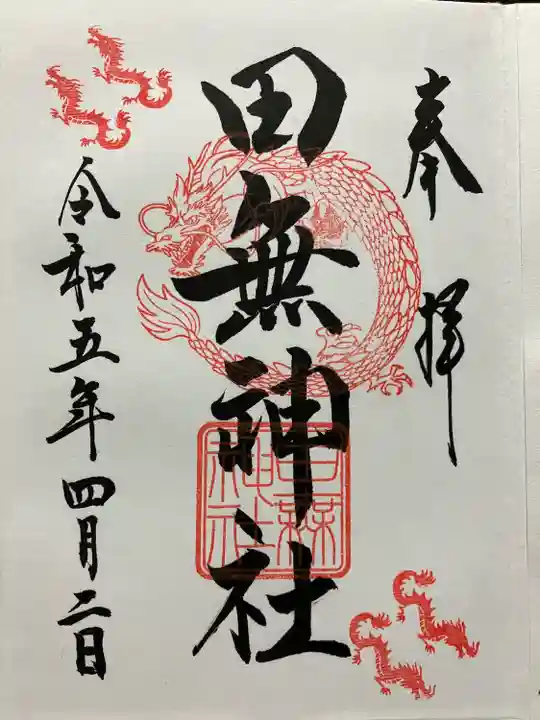 奉拝
田無神社
田無神社
令和五年四月二日